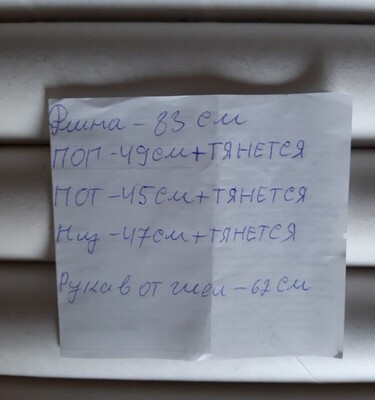 Длина - 83 см
ПОГ - 49 см + ТЯНЕТСЯ
ПОТ - 45 см + ТЯНЕТСЯ
Низ - 47 см + ТЯНЕТСЯ
Рукав от шеи - 62 см